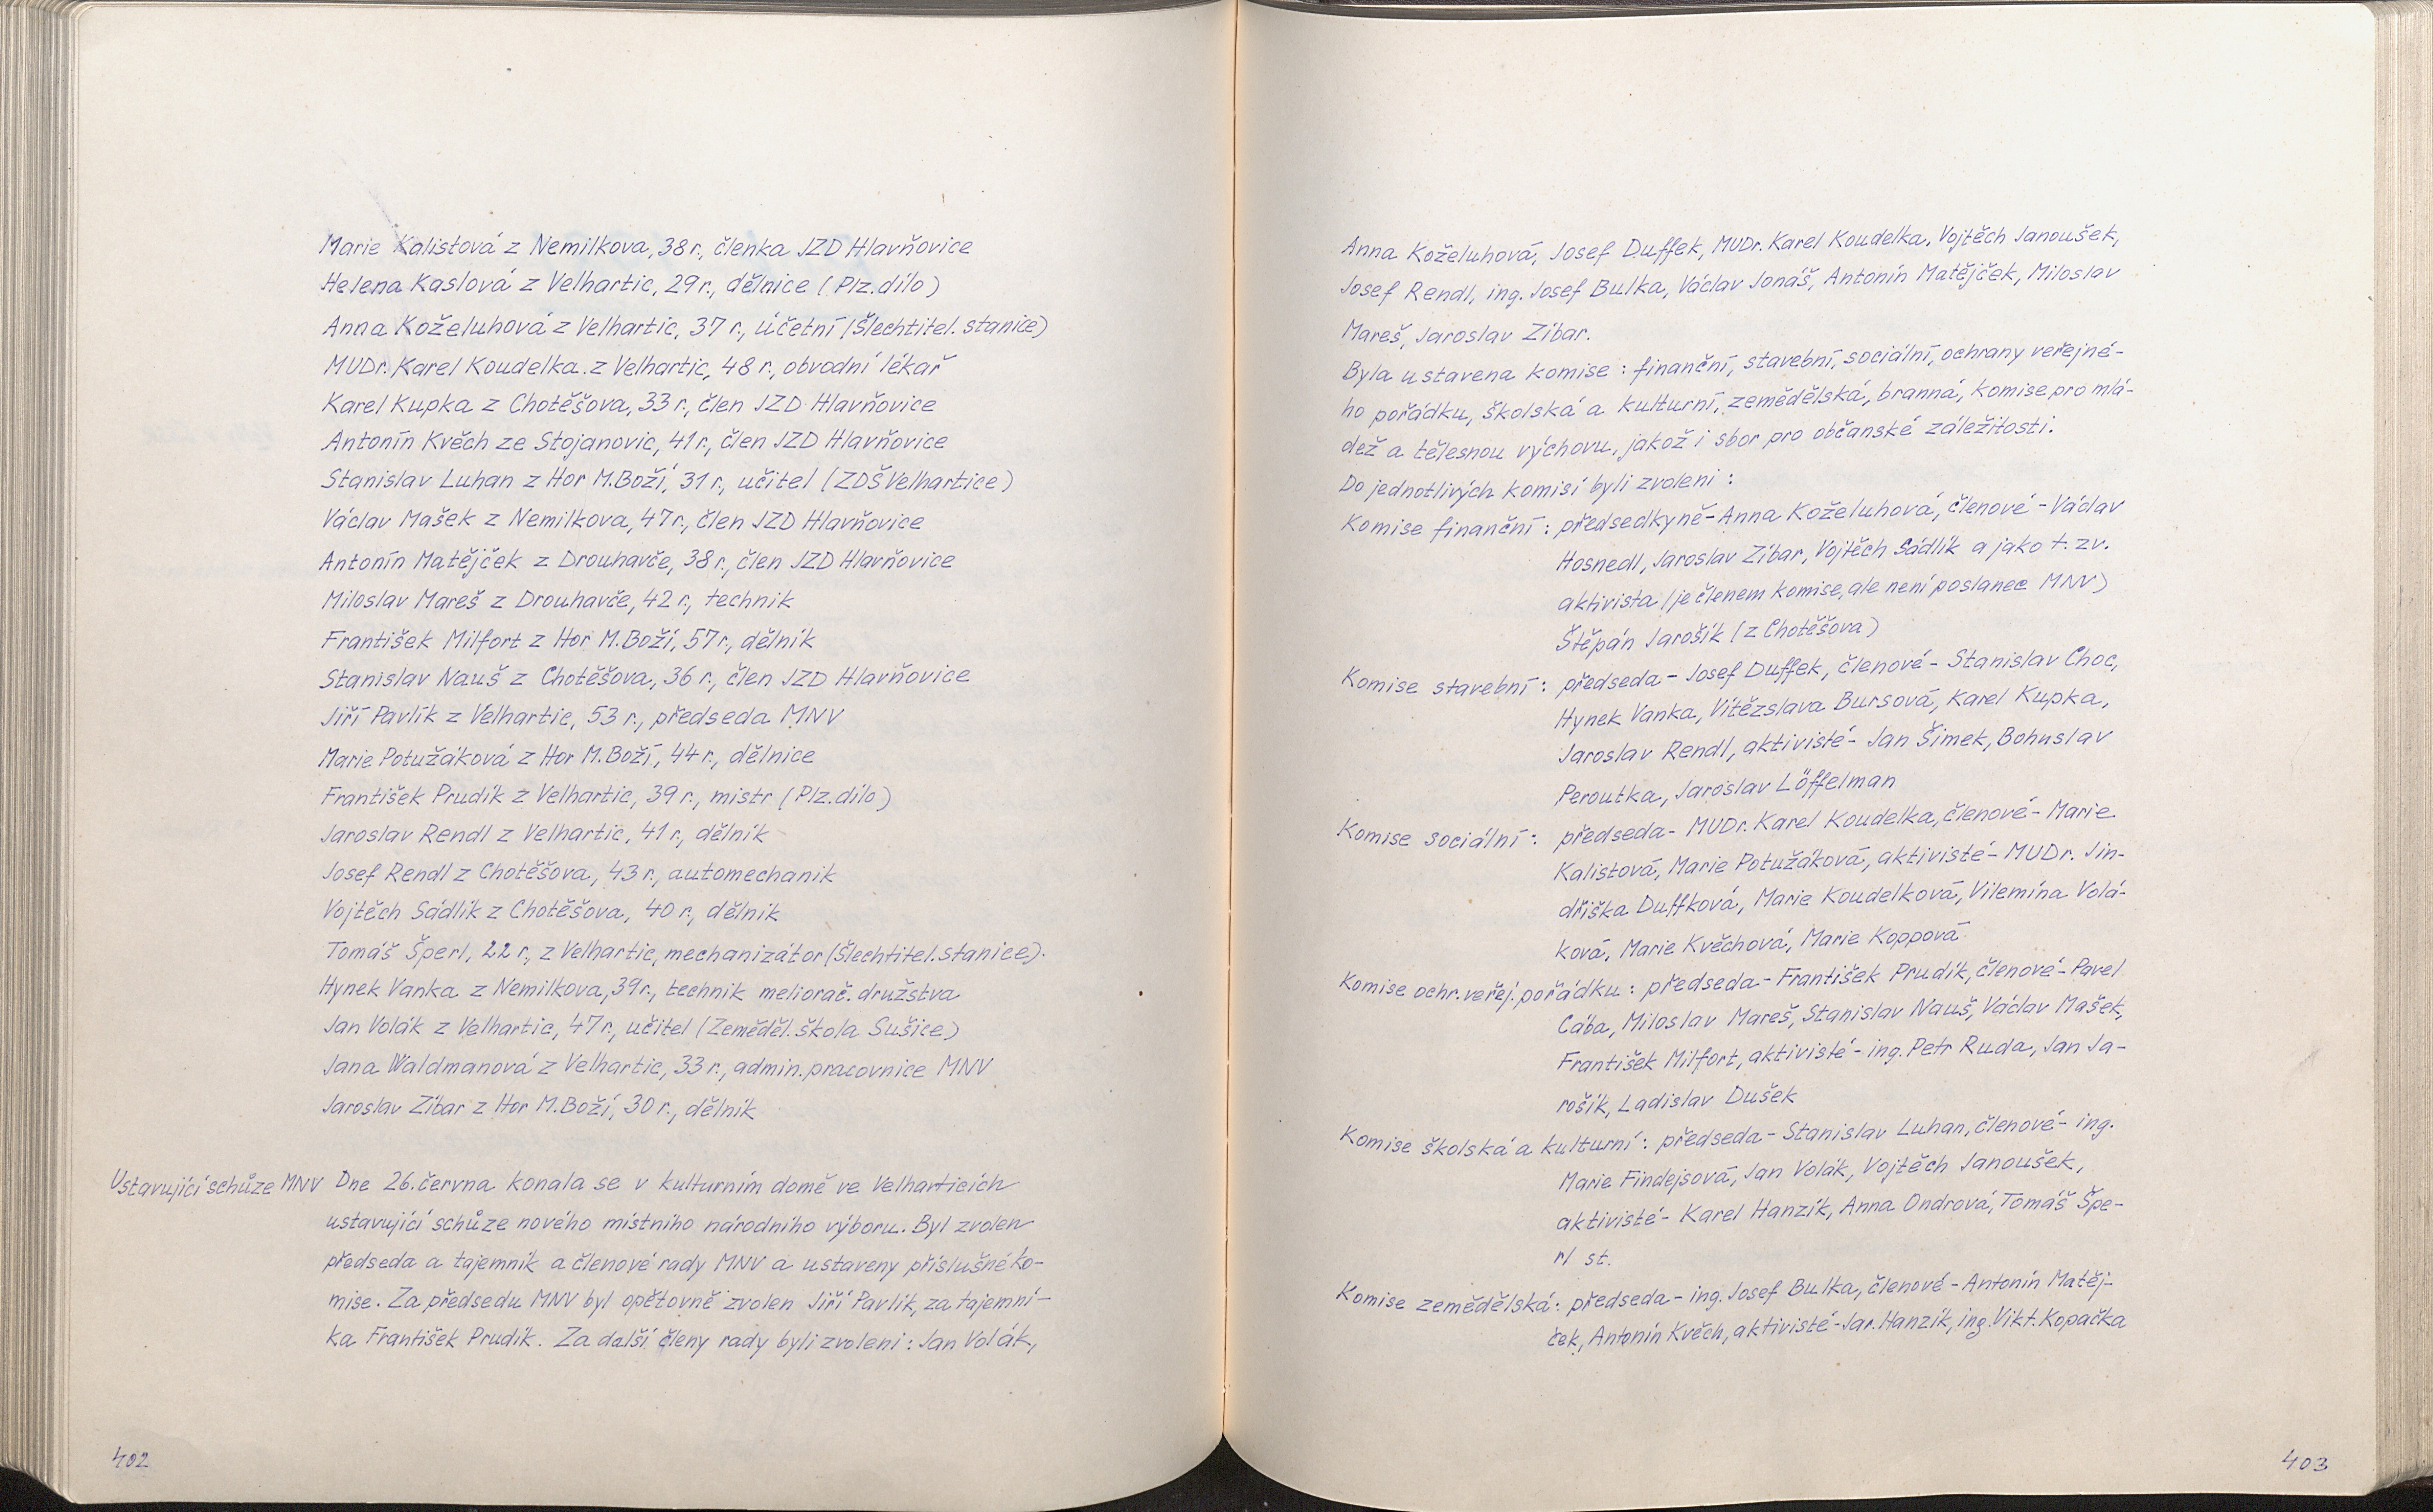 Marie Kalistová z Nemilkova, 38 r., členka JZD Hlavňovice
Helena Kaslová z Velhartic, 29 r., dělnice (Plz. dílo)
Anna Koželuhová z Velhartic, 37 r., účetní (Šlechtitel. stanice)
MUDr. Karel Koudelka z Velhartic, 48 r., obvodní lékař
Karel Kupka z Chotěšova, 33 r., člen JZD Hlavňovice
Antonín Kvěch ze Stojanovic, 41 r., člen JZD Hlavňovice
Stanislav Luhan z Hor M. Boží, 31 r., učitel (ZDŠ Velhartice)
Václav Mašek z Nemilkova, 47 r., člen JZD Hlavňovice
Antonín Matějček z Drouhavče, 38 r., člen JZD Hlavňovice
Miloslav Mareš z Drouhavče, 42 r., technik
František Milfort z Hor M. Boží, 57 r., dělník
Stanislav Nauš z Chotěšova, 36 r., člen JZD Hlavňovice
Jiří Pavlík z Velhartic, 53 r., předseda MNV
Marie Potužáková z Hor M. Boží, 44 r., dělnice
František Prudík z Velhartic, 39 r., mistr (Plz. dílo)
Jaroslav Rendl z Velhartic, 41 r., dělník
Josef Rendl z Chotěšova, 43 r., automechanik
Vojtěch Sádlík z Chotěšova, 40 r., dělník
Tomáš Šperl, 22 r., z Velhartic, mechanizátor (Šlechtitel. stanice).
Hynek Vanka z Nemilkova, 39 r., technik meliorač. družstva
Jan Volák z Velhartic, 47 r., učitel (Zeměděl. škola Sušice)
Jana Waldmanová z Velhartic, 33 r., admin. pracovnice MNV
Jaroslav Zíbar z Hor M. Boží, 30 r., dělník
Ustavující schůze MNV Dne 26. června konala se v kulturním domě ve Velharticích
ustavující schůze nového místního národního výboru. Byl zvolen
předseda a tajemník a členové rady MNV a ustaveny příslušné ko-
mise. Za předsedu MNV byl opětovně zvolen Jiří Pavlík, za tajemní-
ka František Prudík. Za další členy rady byli zvoleni: Jan Volák,
402
Anna Koželuhová, Josef Duffek, MUDr. Karel Koudelka, Vojtěch Janoušek,
Josef Rendl, ing. Josef Bulka, Václav Jonáš, Antonín Matějček, Miloslav
Mareš, Jaroslav Zíbar.
Byla ustavena komise: finanční, stavební, sociální, ochrany veřejné-
ho pořádku, školská a kulturní, zemědělská, branná, komise pro mlá-
dež a tělesnou výchovu, jakož i sbor pro občanské záležitosti.
Do jednotlivých komisí byli zvoleni:
Komise finanční: předsedkyně - Anna Koželuhová, členové - Václav
Hosnedl, Jaroslav Zíbar, Vojtěch Sádlík a jako t. zv.
aktivista (je členem komise, ale není poslanec MNV)
Štěpán Jarošík (z Chotěšova)
Komise stavební: předseda - Josef Duffek, členové - Stanislav Choc,
Hynek Vanka, Vítězslava Bursová, Karel Kupka,
Jaroslav Rendl, aktivisté - Jan Šimek, Bohuslav
Peroutka, Jaroslav Löffelman
Komise sociální: předseda - MUDr. Karel Koudelka, členové - Marie
Kalistová, Marie Potužáková, aktivisté - MUDr. Jin-
dřiška Duffková, Marie Koudelková, Vilemína Volá-
ková, Marie Kvěchová, Marie Koppová
Komise ochr. veřej. pořádku: předseda - František Prudík, členové - Pavel
Cába, Miloslav Mareš, Stanislav Nauš, Václav Mašek,
František Milfort, aktivisté - ing. Petr Ruda, Jan Ja-
rošík, Ladislav Dušek
Komise školská a kulturní: předseda - Stanislav Luhan, členové - ing.
Marie Findejsová, Jan Volák, Vojtěch Janoušek,
aktivisté - Karel Hanzík, Anna Ondrová, Tomáš Špe-
rl st.
Komise zemědělská: předseda - ing. Josef Bulka, členové - Antonín Matěj-
ček, Antonín Kvěch, aktivisté - Jar. Hanzík, ing. Vikt. Kopačka
403